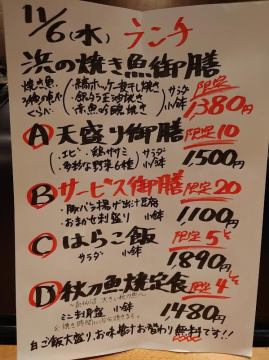 11/6(水) ランチ
浜の焼き魚御膳
焼き魚
・縞ホッケ一夜干し焼き サラダ 限定
・銀ダラ 小鉢
・赤魚 焼き
1380円
A 天盛り御膳 限定10
・エビ・鶏ササミ サラダ
・多彩な野菜6種 小鉢
1500円
B サービス御膳 限定20
・豚バラ
・おまかせ刺盛り 小鉢
1100円
C はらこ飯 限定5
サラダ 小鉢
1890円
D 秋刀魚焼定食 限定4
ミニ刺身盛 小鉢
1480円
白ご飯大盛り、お味噌汁お替わり無料です!!